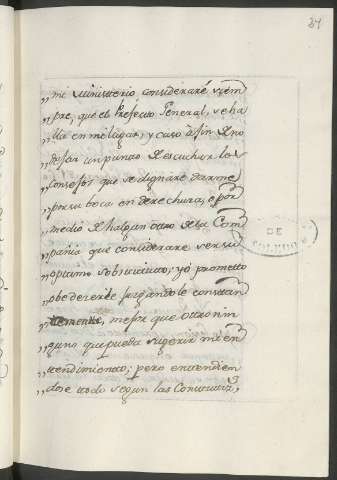 84
„mi Ministerio consideraré siem
„pre, que el Prefecto General, se ha
„lla en mi lugar, y caso à fin de no
„dejar un punto de escuchar los
„consejos que se dignare darme
„por su boca en derechura, o por
„medio de halgun otro de la Com
„pania que considerare ver su
„optimo sobre; yó prometto
„obedecerle juzgandole constan
„temente, mejor que otro nin
„guno que pueda sugerir mi en
„tendimiento; pero entendien
„dose todo segun las Constituti,
DE
TOLEDO